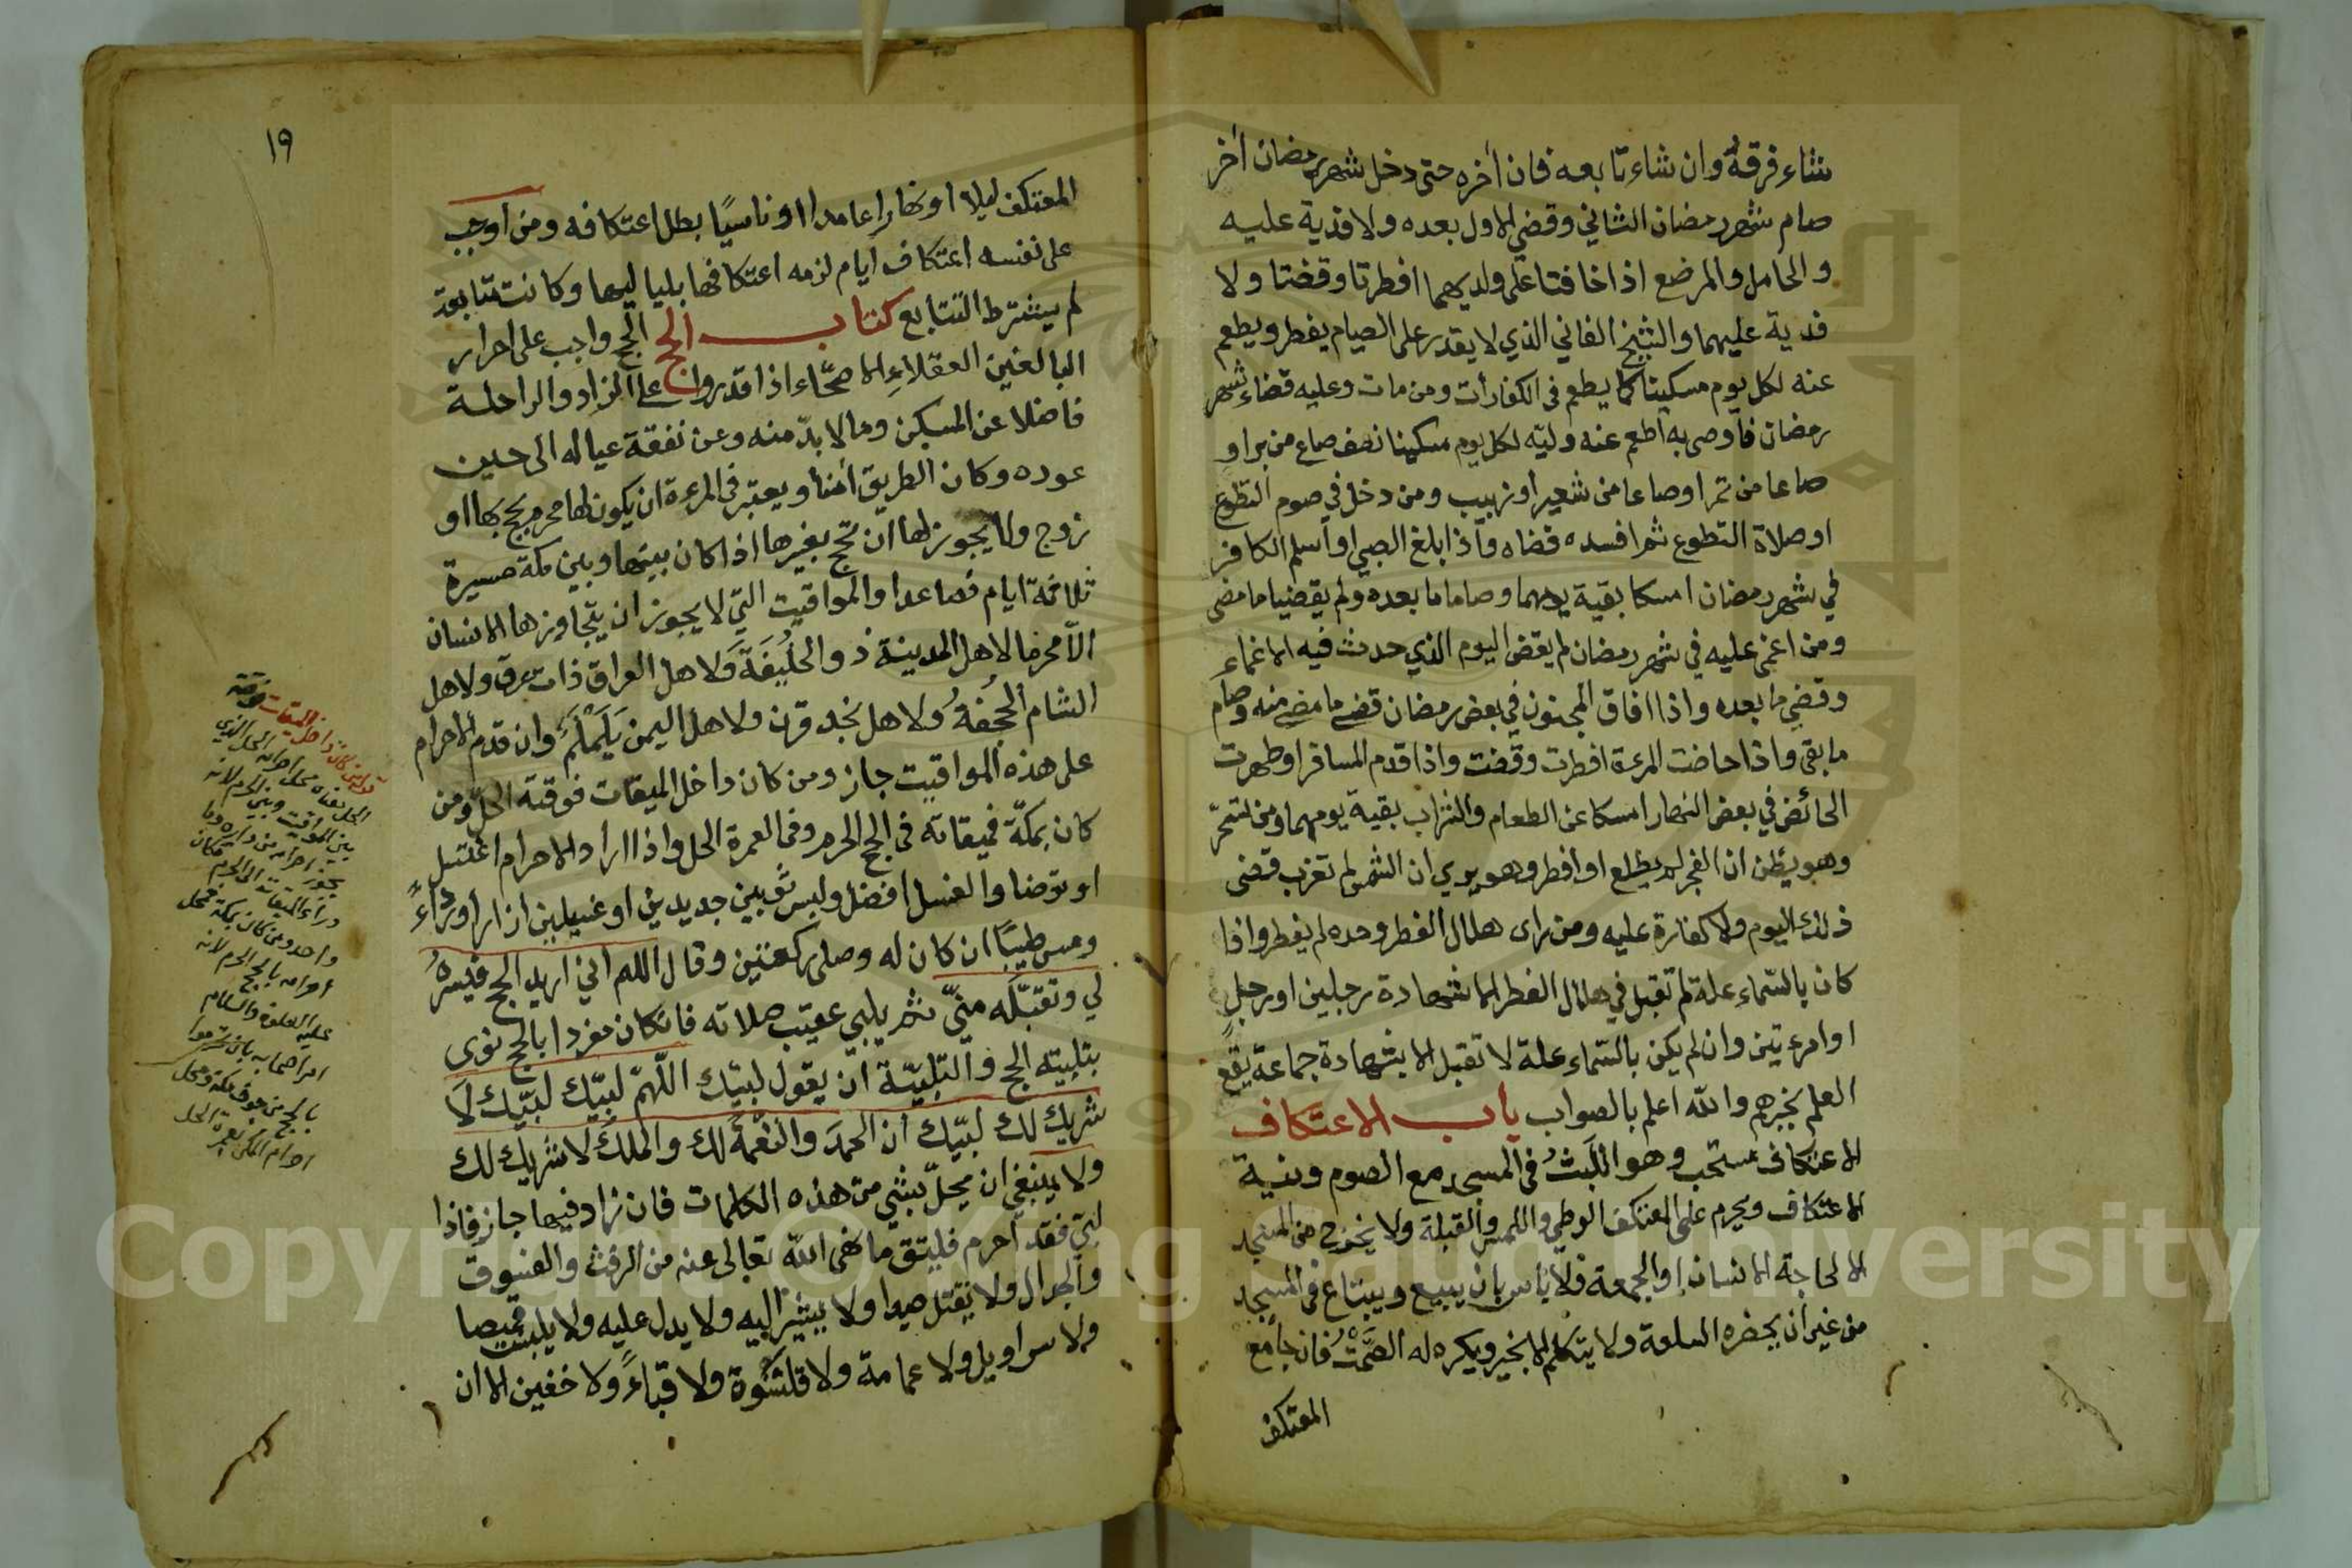 شاء فرقه وان شاء تابعه فان أخره حتى دخل شهر رمضان أخر
صام شهر رمضان الثاني وقضي الاول بعده ولا فدية عليه
والحامل والمرضع اذا خافتا على ولديهما افطرتا وقضتا ولا
فدية عليهما والشيخ الفاني الذي لا يقدر على الصيام يفطر ويطعم
عنه لكل يوم مسكينا كما يطعم في الكفارأت ومن مات وعليه قضاء شهر
رمضان فأوصى به أطعم عنه وليّه لكل يوم مسكينا نصف صاع من براو
صاعا من تمر اوصاعا من شعير أو زبيب ومن دخل في صوم التطوع
او صلاة التطوع ثم افسده قضاه وأذا بلغ الصبي او أسلم الكافر
في شهر رمضان امسكا بقية يومهما وصاما ما بعده ولم يقضيا ما مضى
ومن اغمي عليه في شهر رمضان لم يقض اليوم الذي حدث فيه الاغماء
وقضي ما بعده واذا افاق المجنون في بعض رمضان قضى ما مضى منه وصام
ما بقى واذا حاضت المرءة افطرت وقضت واذا قدم المسافر اوطهرت
الحائض في بعض النهار امسكا عن الطعام والشراب بقية يومهما ومن تسحر
وهو يظن ان الفجر لم يطلع او افطر وهو يري ان الشمس لم تغرب قضى
ذلك اليوم ولا كفارة عليه ومن راى هلال الفطر وحده لم يفطر واذا
كان بالسماء علة لم تقبل في هلال الفطر الا شهادة رجلين او رجل
اوامرءتين وان لم يكن بالسماء علة لا تقبل الا بشهادة جماعة يقع
العلم بخبرهم والله اعلم بالصواب باب الاعتكاف
الاعتكاف مستحب وهو اللَبثُ في المسجد مع الصوم ونية
الاعتكاف ويحرم على المعتكف الوطي واللمس والقبلة ولا يخرج من المسجد
الا لحاجة الانسان او الجمعة فلا بأس بان يبيع ويبتاع في المسجد
من غير ان يحضره السلعة ولا يتكلم الا بخير ويكره له الصَّمْتُ فان جامع
المعتكف
١٩
المعتكف ليلا او نهارا عامدا او ناسيًا بطل اعتكافه ومن اوجب
على نفسه اعتكاف ايام لزمه اعتكافها بلياليها وكانت متتابعة
لم يشترط التتابع كتاب الحج الحج واجب على احرار
البالغين العقلاء الاصحّاء اذا قدروا على الزاد والراحلة
فاضلا عن المسكن وما لا بدّ منه وعن نفقة عياله الى حين
عوده وكان الطريق أمنا ويعتبر في المرءة ان يكون لها محرم يحج بها او
زوج ولا يجوز لها ان تحج بغيرها اذا كان بينها وبين مكة مسيرة
ثلاثة ايام فصاعدا والمواقيت التي لا يجوز ان يتجاوزها الانسان
الّا محرما لاهل المدينة ذو الحُلَيفَة ولاهل العراق ذات عرق ولاهل
الشام ألجُحفةُ ولاهل نجد قرن ولاهل اليمن يَلَمْلَم وان قدم الاحرام
على هذه المواقيت جاز ومن كان داخل الميقات فوقته الحلّ ومن
كان بمكّة فميقاته في الحج الحرم وفي العمرة الحل واذا اراد الاحرام اغتسل
او توضا والغسل افضل ولبس ثوبين جديدين او غسيلين ازارا ورداءً
ومس طيبًا ان كان له وصلى ركعتين وقال اللهم اني اريد الحج فيسرهُ
لي وتقبّله منّي ثم يلبي عقيب صلاته فان كان مفردا بالحج نوى
بتلبيته الحج والتلبيّة ان يقول لبيّك اللّهمّ لبيّك لبيّك لَا
شريك لك لبيّك أن الحمدَ والنعْمةَ لك والملكُ لا شريك لك
ولا ينبغي ان يخلّ بشي من هذه الكلمات فان زاد فيها جاز فاذا
لبّى فقد أحرم فليتق ما نهى الله تعالى عنه من الرفث والفسوق
والجدال ولا يقتل صيدا ولا يشير اليه ولا يدل عليه ولا يلبس قميصا
ولا سراويل ولا عمامة ولا قلنسوة ولا قباءً ولا خفين الا ان
بين المواقيت وبين الحرم لانه
يجوز احرامه من داره وما
وراء الميقات الى الحرم مكان
واحد ومن كان بمكة فمحل
احرامه بالحج الحرم لانه
عليه الصلوة والسلام
امر اصحابه بان يحرموا
بالحج من جوف مكة ومحل
احرام المكي بعمرة الحل
Copyright © King Saud University